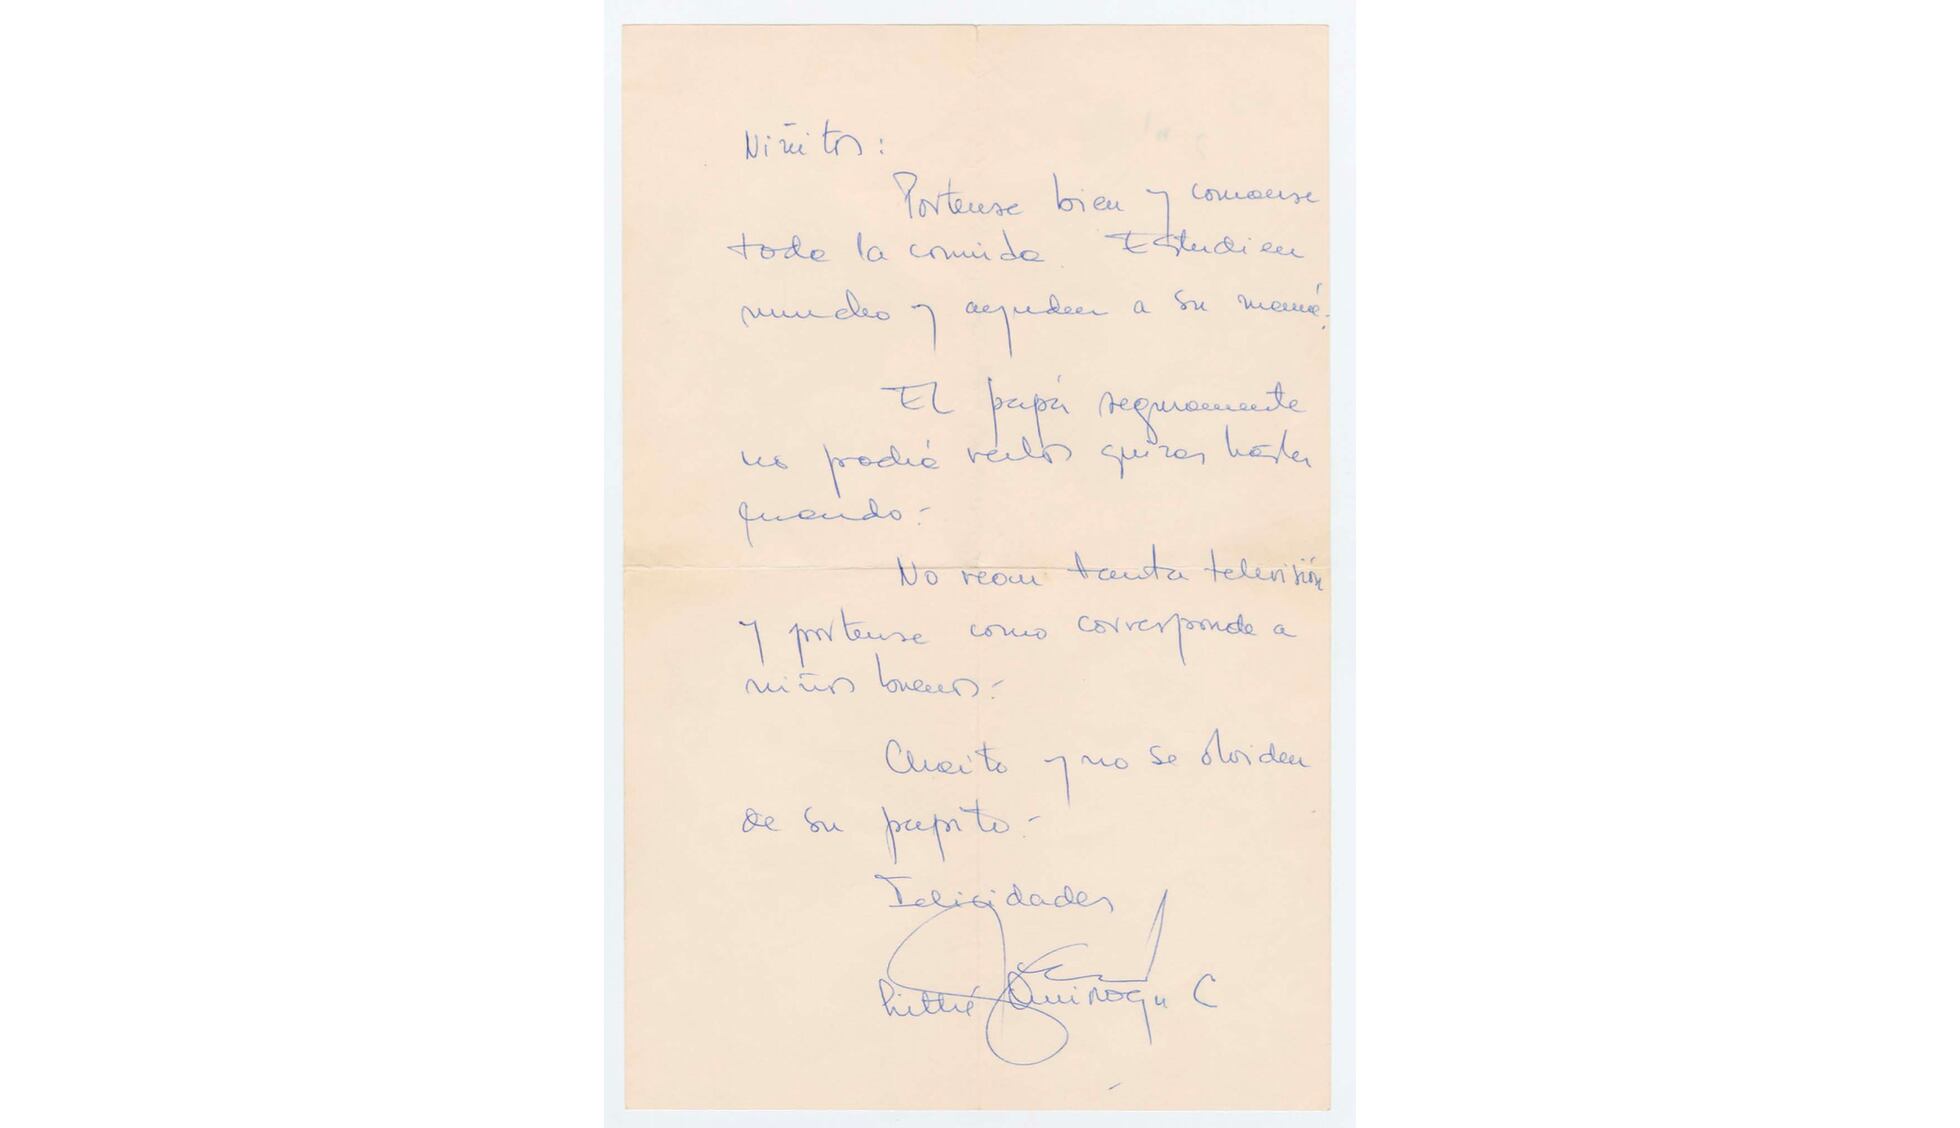 Niñitos:
Portense bien y comanse
toda la comida. Estudien
mucho y ayuden a su mamá.
El papá seguramente
no podrá verlos quizas hasta
quando.-
No vean tanta televisión
y portense como corresponde a
niños buenos.-
Chaito y no se olviden
de su papito.-
Felicidades
Littré Quiroga C